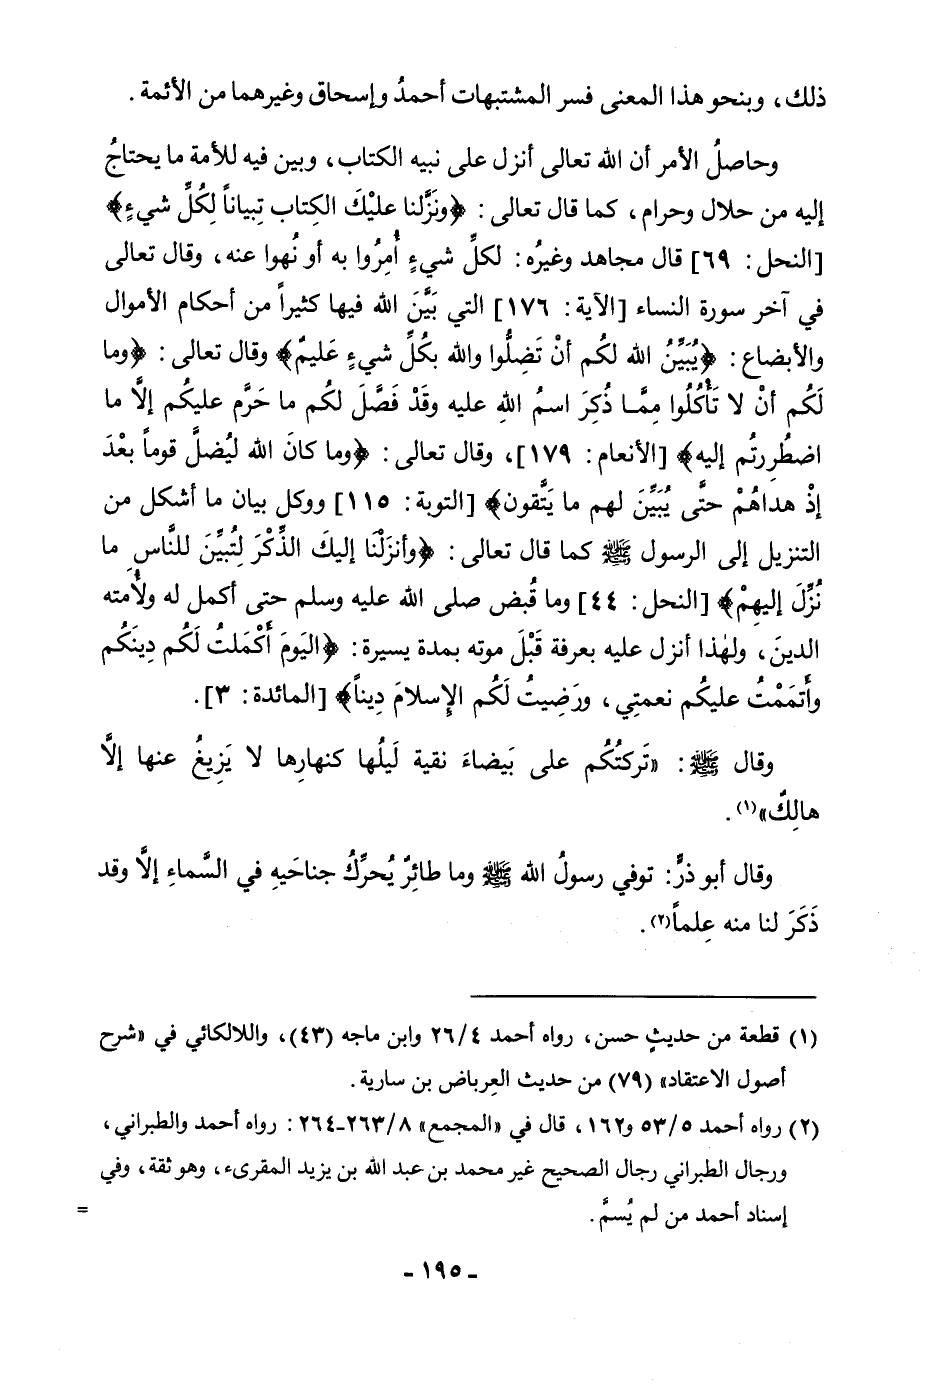 ذلك، وبنحو هذا المعنى فسر المشتبهات أحمدُ وإسحاق وغيرهما من الأئمة.
وحاصلُ الأمر أن الله تعالى أنزل على نبيه الكتاب، وبين فيه للأمة ما يحتاجُ
إليه من حلال وحرام، كما قال تعالى: ﴿ونَزَّلنا عليْكَ الكِتاب تِبياناً لِكُلِّ شيءٍ﴾
[النحل: ٦٩] قال مجاهد وغيرُه: لكلِّ شيءٍ أُمِرُوا به أو نُهوا عنه، وقال تعالى
في آخر سورة النساء [الآية: ١٧٦] التي بَيَّنَ الله فيها كثيراً من أحكام الأموال
والأبضاع: ﴿يُبَيِّنُ الله لكُم أنْ تَضِلُّوا والله بكُلِّ شيءٍ عَليمٌ﴾ وقال تعالى: ﴿وما
لَكُم أنْ لا تَأْكُلُوا مِمَّا ذُكِرَ اسمُ اللهِ عليه وقَدْ فَصَّلَ لكُم ما حَرَّم عليكُم إلَّا ما
اضطُرِرتُم إليه﴾ [الأنعام: ١٧٩]، وقال تعالى: ﴿وما كانَ الله ليُضلَّ قوماً بعْدَ
إذْ هداهُمْ حتَّى يُبَيِّنَ لهم ما يَتَّقون﴾ [التوبة: ١١٥] ووكل بيان ما أشكل من
التنزيل إلى الرسول ﷺ كما قال تعالى: ﴿وأنزَلْنَا إليكَ الذِّكْرَ لِتُبيِّنَ للنَّاسِ ما
نُزِّلَ إليهِمْ﴾ [النحل: ٤٤] وما قُبض صلى الله عليه وسلم حتى أكمل له ولأُمته
الدينَ، ولهٰذا أنزل عليه بعرفة قَبْلَ موته بمدة يسيرة: ﴿اليَومَ أَكْمَلتُ لَكُم دِينَكُم
وأَتمَمْتُ عليكُم نعمتِي، ورَضِيتُ لَكُم الإِسلامَ دِيناً﴾ [المائدة: ٣].
وقال ﷺ: «تَركتُكُم على بَيضاءَ نقية لَيلُها كنهارِها لا يَزِيغُ عنها إلَّا
هالِكٌ»(١).
وقال أبو ذرٍّ: توفي رسولُ الله ﷺ وما طائِرٌ يُحرِّكُ جناحَيهِ في السَّماءِ إلَّا وقد
ذَكَرَ لنا منه عِلماً(٢).
(١) قطعة من حديثٍ حسن، رواه أحمد ٢٦/٤ وابن ماجه (٤٣)، واللالكائي في «شرح
أصول الاعتقاد» (٧٩) من حديث العِرباض بن سارية.
(٢) رواه أحمد ٥٣/٥ و١٦٢، قال في «المجمع» ٢٦٣/٨-٢٦٤: رواه أحمد والطبراني،
ورجال الطبراني رجال الصحيح غير محمد بن عبد الله بن يزيد المقرىء، وهو ثقة، وفي
إسناد أحمد من لم يُسمَّ. =
- ١٩٥ -